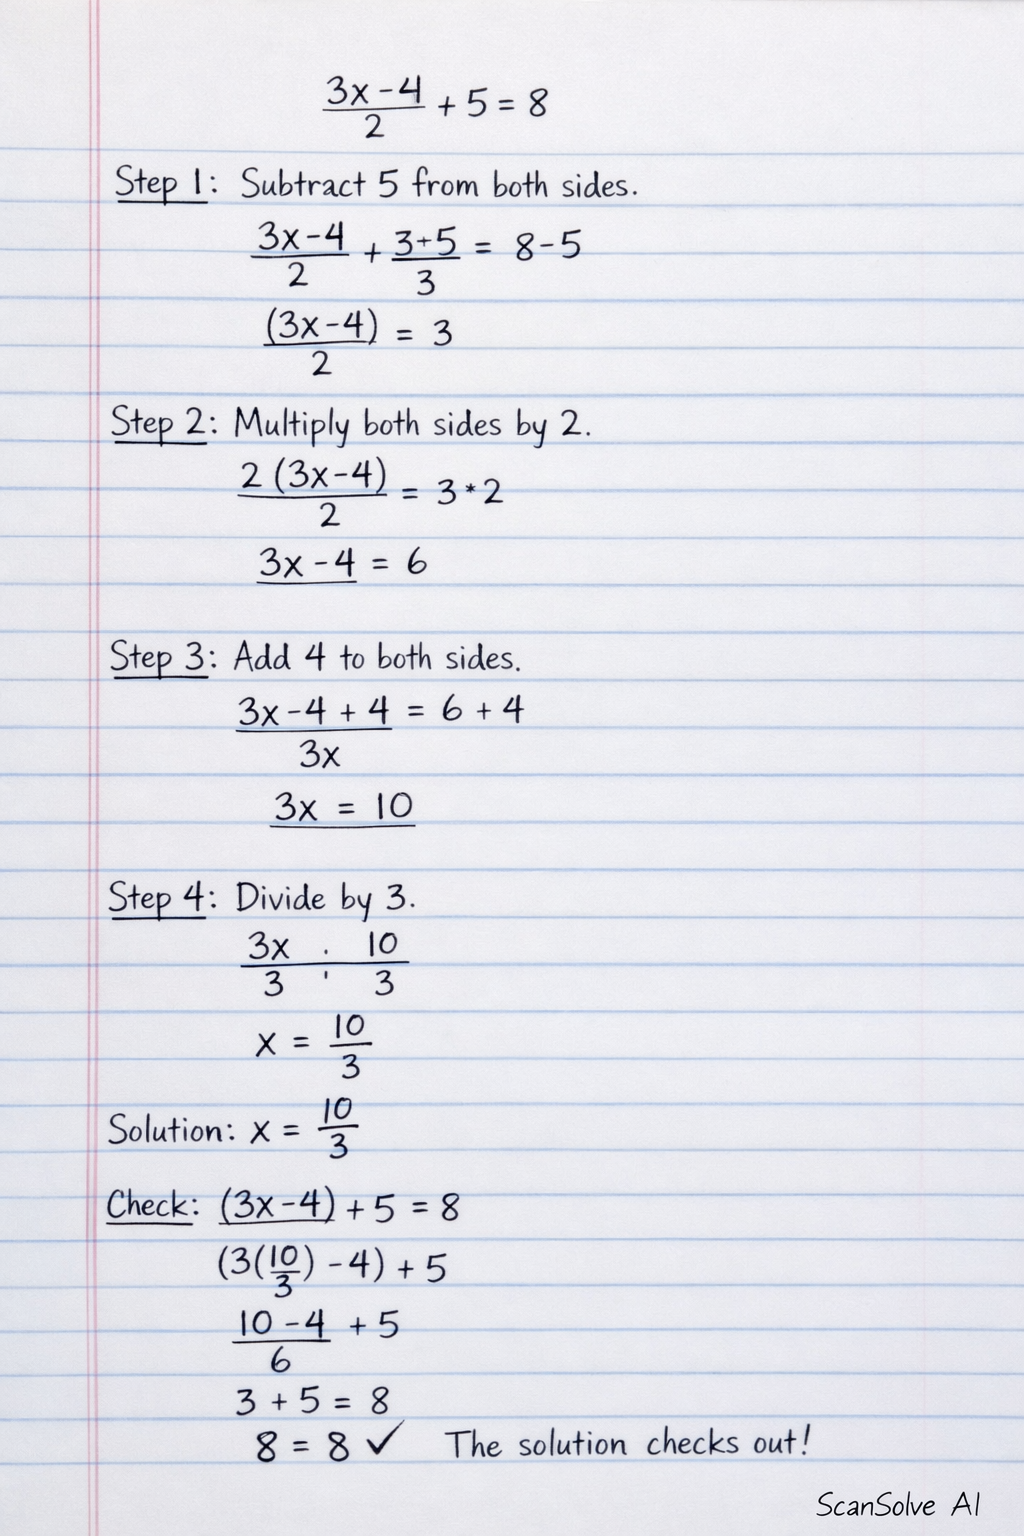 3x-4
2
+ 5 = 8
Step 1: Subtract 5 from both sides.
3x-4
2
+ 3+5
3
= 8-5
(3x-4)
2
= 3
Step 2: Multiply both sides by 2.
2 (3x-4)
2
= 3*2
3x - 4 = 6
Step 3: Add 4 to both sides.
3x-4 + 4 = 6 + 4
3x
3x = 10
Step 4: Divide by 3.
3x : 10
3 3
x = 10
3
Solution: x = 10
3
Check: (3x-4) + 5 = 8
(3(10
3
) - 4) + 5
10 - 4 + 5
6
3 + 5 = 8
8 = 8 ✓ The solution checks out!
ScanSolve AI